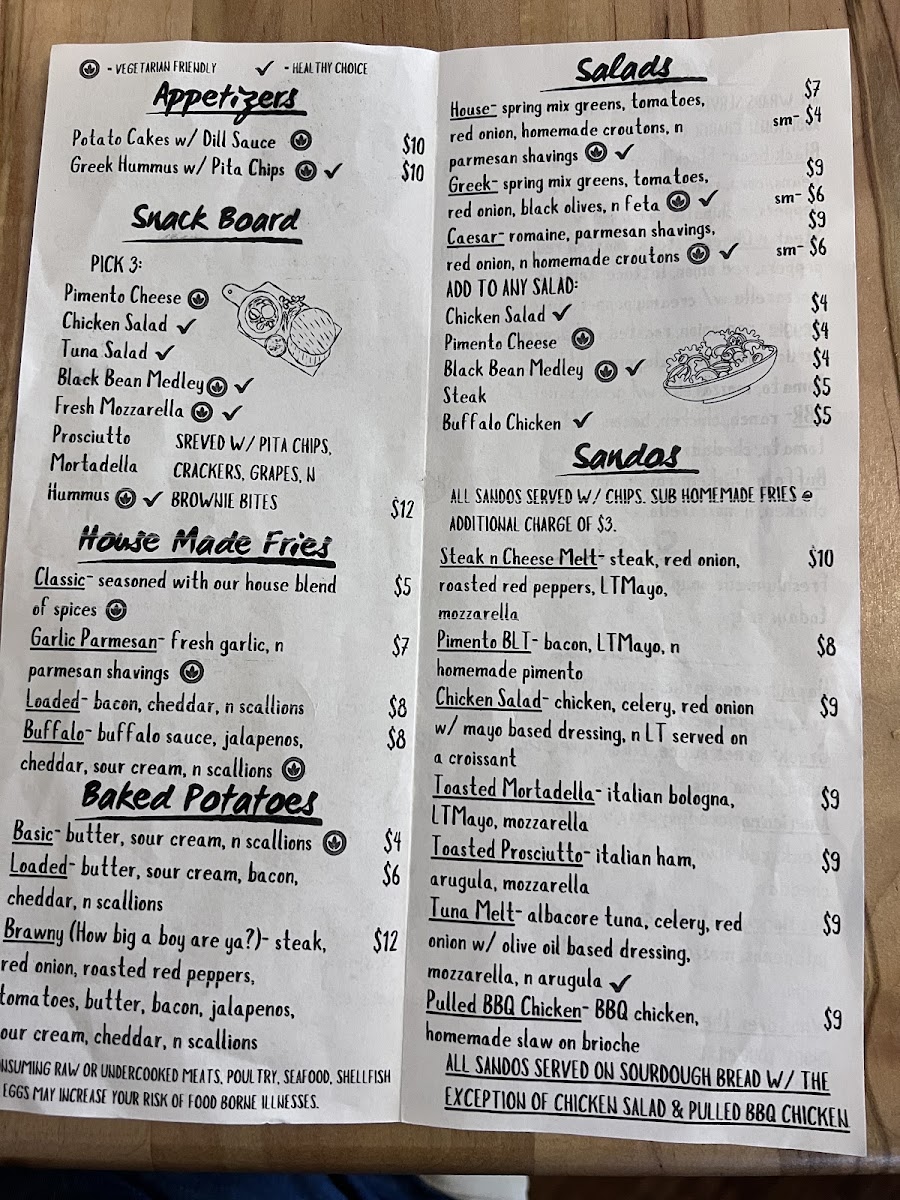 - VEGETARIAN FRIENDLY ✓ - HEALTHY CHOICE
Appetizers
Potato Cakes w/ Dill Sauce $10
Greek Hummus w/ Pita Chips ✓ $10
Snack Board
PICK 3:
Pimento Cheese
Chicken Salad ✓
Tuna Salad ✓
Black Bean Medley ✓
Fresh Mozzarella ✓
Prosciutto SREVED W/ PITA CHIPS,
Mortadella CRACKERS, GRAPES, N
Hummus ✓ BROWNIE BITES $12
House Made Fries
Classic- seasoned with our house blend $5
of spices
Garlic Parmesan- Fresh garlic, n $7
parmesan shavings
Loaded- bacon, cheddar, n scallions $8
Buffalo- buffalo sauce, jalapenos, $8
cheddar, sour cream, n scallions
Baked Potatoes
Basic- butter, sour cream, n scallions $4
Loaded- butter, sour cream, bacon, $6
cheddar, n scallions
Brawny (How big a boy are ya?)- steak, $12
red onion, roasted red peppers,
tomatoes, butter, bacon, jalapenos,
our cream, cheddar, n scallions
NSUMING RAW OR UNDERCOOKED MEATS, POULTRY, SEAFOOD, SHELLFISH
EGGS MAY INCREASE YOUR RISK OF FOOD BORNE ILLNESSES.
Salads
House- spring mix greens, tomatoes, $7
red onion, homemade croutons, n sm- $4
parmesan shavings ✓
Greek- spring mix greens, tomatoes, $9
red onion, black olives, n feta ✓ sm- $6
Caesar- romaine, parmesan shavings, $9
red onion, n homemade croutons ✓ sm- $6
ADD TO ANY SALAD:
Chicken Salad ✓ $4
Pimento Cheese $4
Black Bean Medley ✓ $4
Steak $5
Buffalo Chicken ✓ $5
Sandos
ALL SANDOS SERVED W/ CHIPS. SUB HOMEMADE FRIES @
ADDITIONAL CHARGE OF $3.
Steak n Cheese Melt- steak, red onion, $10
roasted red peppers, LTMayo,
mozzarella
Pimento BLT- bacon, LTMayo, n $8
homemade pimento
Chicken Salad- chicken, celery, red onion $9
w/ mayo based dressing, n LT served on
a croissant
Toasted Mortadella- italian bologna, $9
LTMayo, mozzarella
Toasted Prosciutto- italian ham, $9
arugula, mozzarella
Tuna Melt- albacore tuna, celery, red $9
onion w/ olive oil based dressing,
mozzarella, n arugula ✓
Pulled BBQ Chicken- BBQ chicken, $9
homemade slaw on brioche
ALL SANDOS SERVED ON SOURDOUGH BREAD W/ THE
EXCEPTION OF CHICKEN SALAD & PULLED BBQ CHICKEN